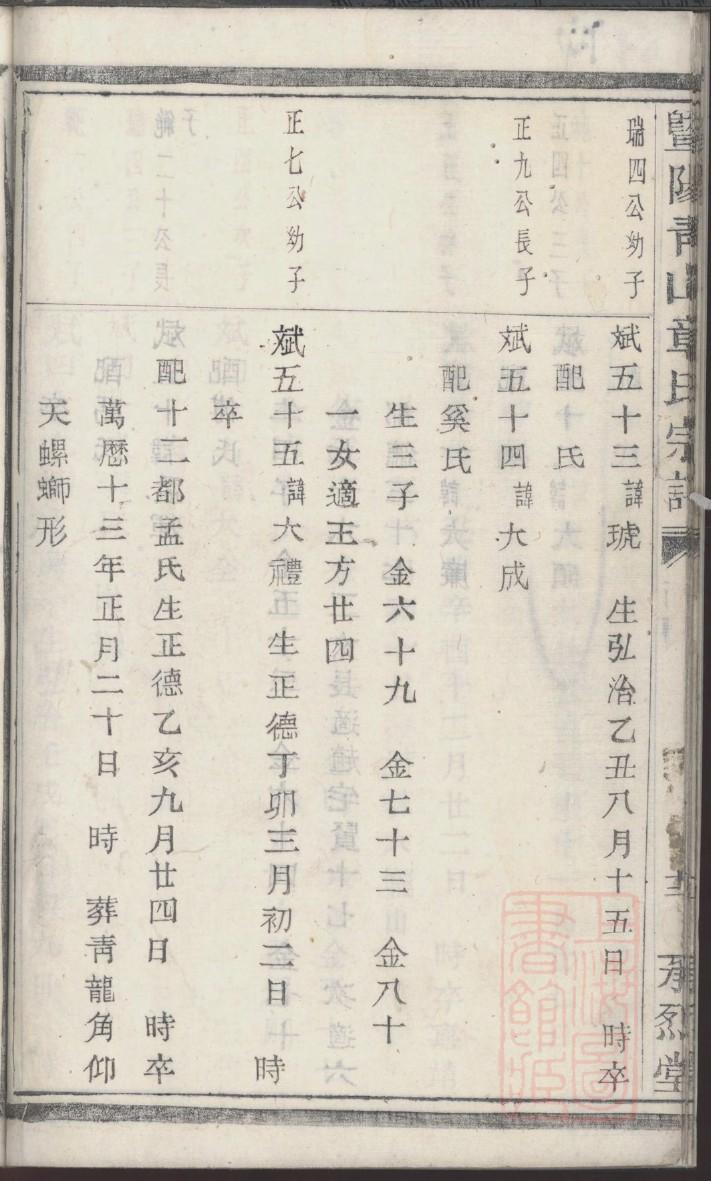 暨陽青山章氏宗譜
承烈堂
瑞四公幼子
斌五十三諱琥 生弘治乙丑八月十五日 時卒
配 氏
正九公長子
斌五十四諱大成
配奚氏
生三子 金六十九 金七十三 金八十
一女適王方廿四
正七公幼子
斌五十五諱大禮 生正德丁卯三月初三日 時
卒
配十二都孟氏生正德乙亥九月廿四日 時卒
萬曆十三年正月二十日 時 葬青龍角仰
天螺螄形
上海圖書館藏